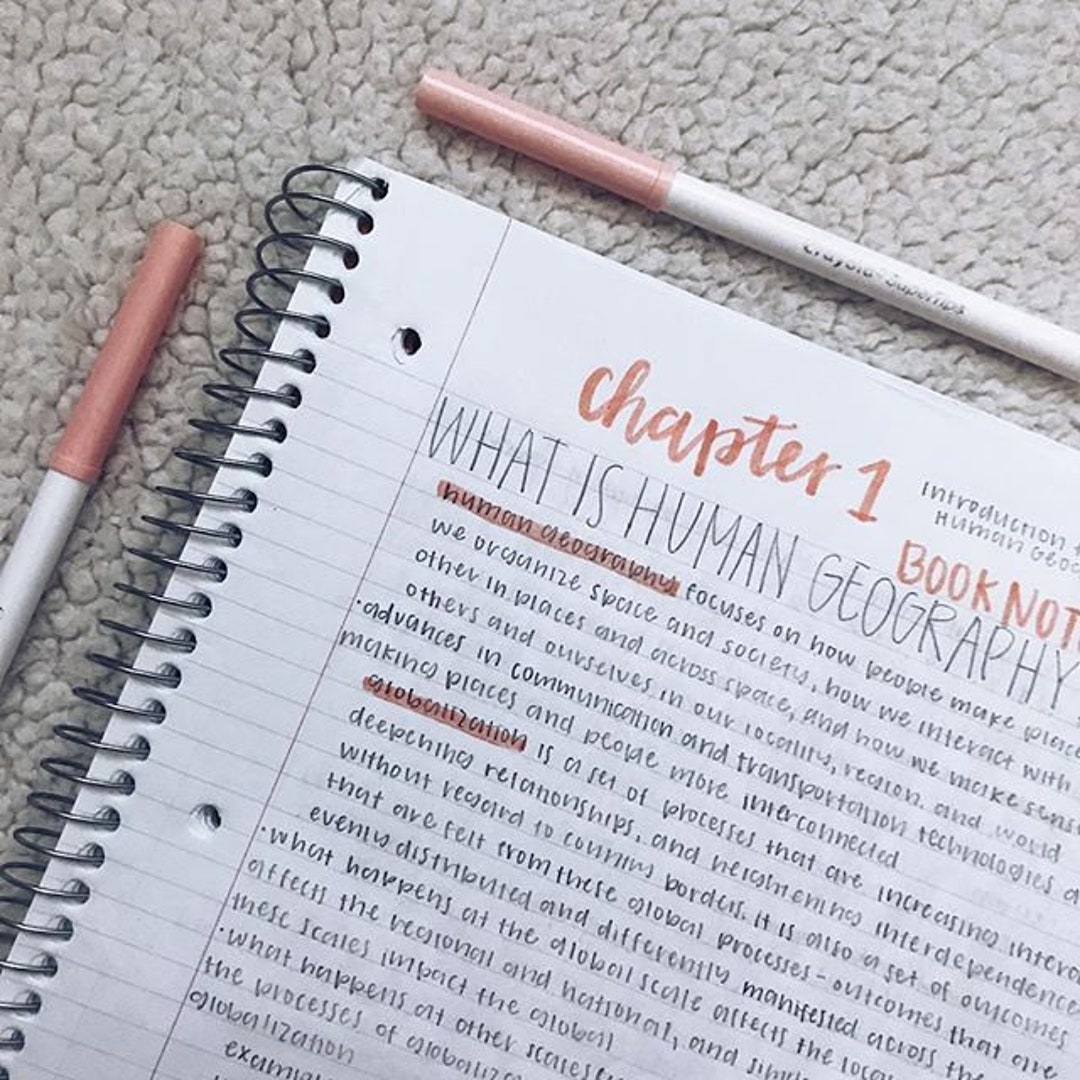 Crayola SuperTips
chapter 1
Introduction
Human Geog
BOOK NOT
WHAT IS HUMAN GEOGRAPHY
human geography focuses on how people make place
we organize space and society, how we interact with
other in places and across space, and how we make sense
others and ourselves in our locality, region, and world
·advances in communication and transportation technologies a
making places and people more interconnected
globalization is a set of processes that are increasing intera
deepening relationships, and heightening interdependence
without regard to country borders. it is also a set of outcomes
that are felt from these global processes - outcomes that are
evenly distributed and differently manifested across the
·what happens at the global scale affects the loca
affects the regional and national, and simil
these scales impact the global
·what happens at other scales
the processes of globaliz
globalization
exam